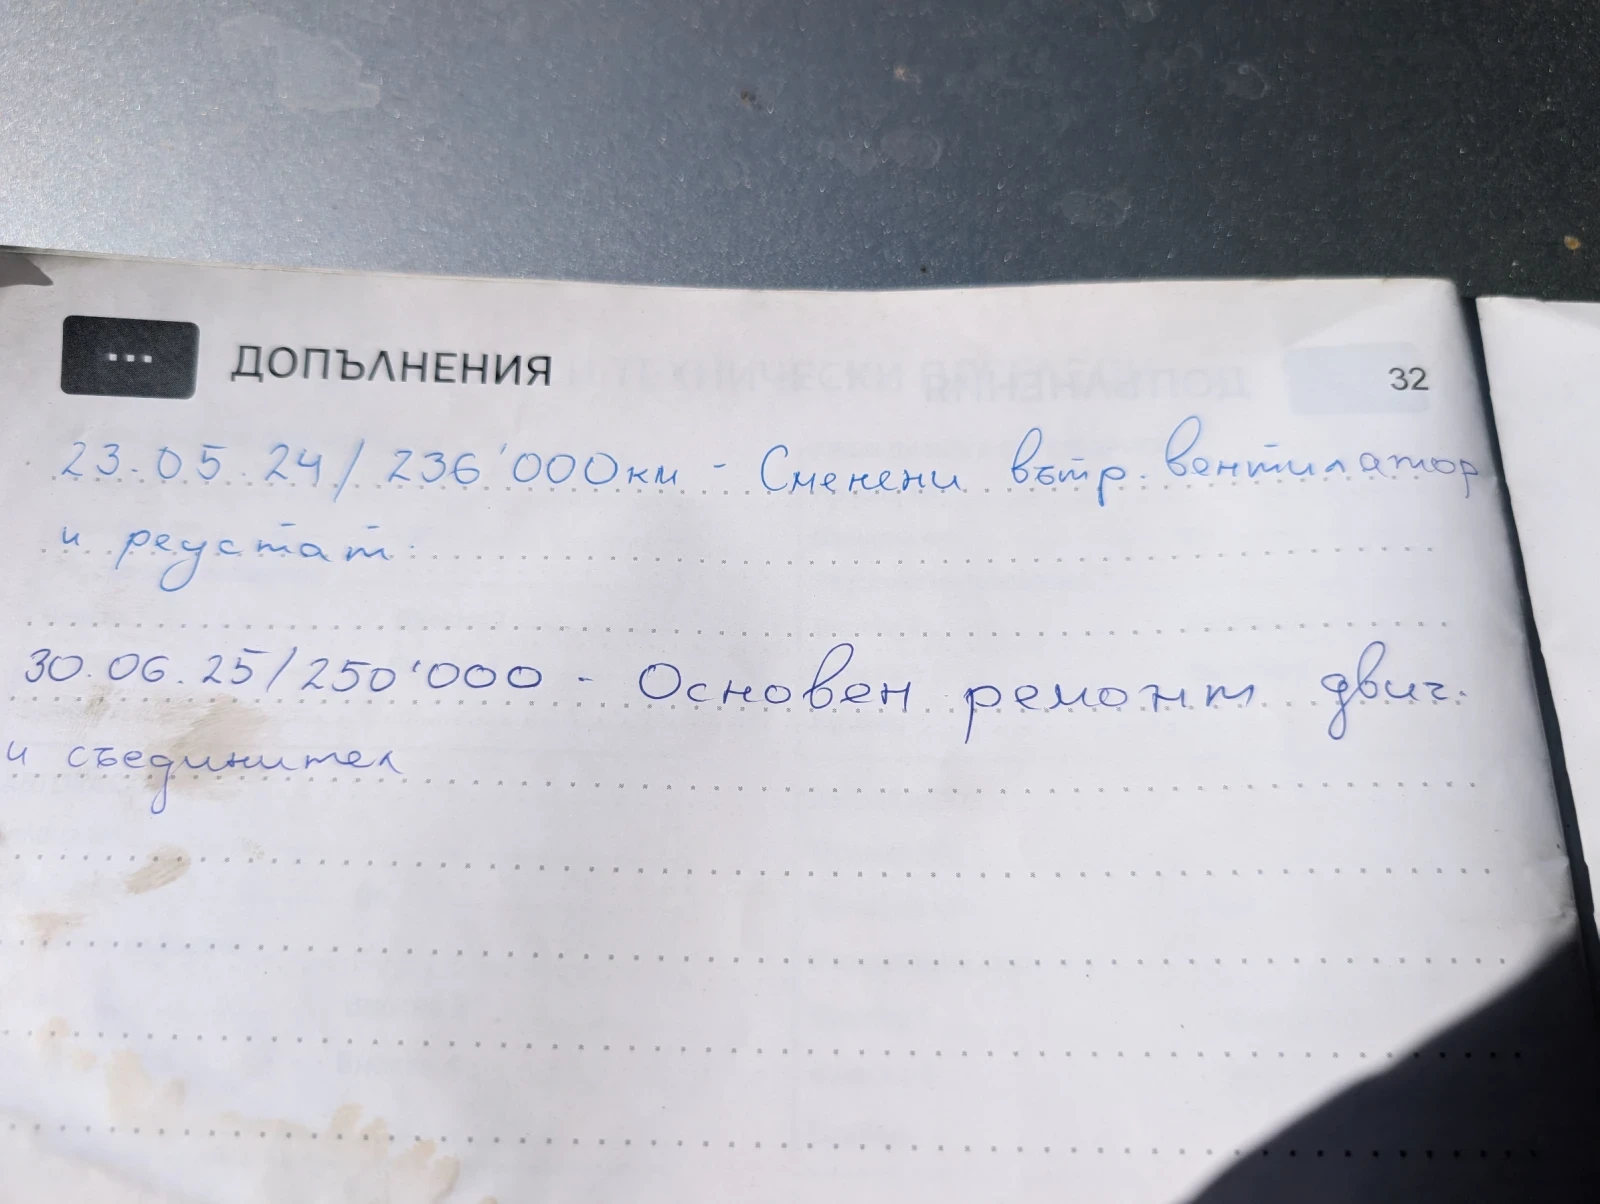 ... ДОПЪЛНЕНИЯ 32
23.05.24/236'000км - Сменени вътр. вентилатор
и реустат.
30.06.25/250'000 - Основен ремонт двиг.
и съединител